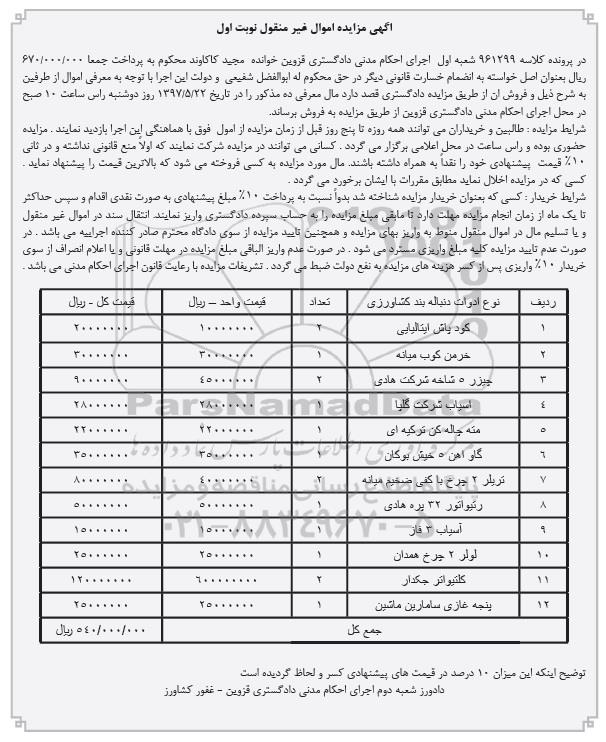 آگهی مزایده اموال غیر منقول نوبت اول
در پرونده کلاسه ۹۶۱۲۹۹ شعبه اول اجرای احکام مدنی دادگستری قزوین خوانده مجید کاکاوند محکوم به پرداخت جمعا ۶۷۰/۰۰۰/۰۰۰
ریال بعنوان اصل خواسته به انضمام خسارت قانونی دیگر در حق محکوم له ابوالفضل شفیعی و دولت این اجرا با توجه به معرفی اموال از طرفین
به شرح ذیل و فروش ان از طریق مزایده دادگستری قصد دارد مال معرفی ده مذکور را در تاریخ ۱۳۹۷/۵/۲۲ روز دوشنبه راس ساعت ۱۰ صبح
در محل اجرای احکام مدنی دادگستری قزوین از طریق مزایده به فروش برساند.
شرایط مزایده : طالبین و خریداران می توانند همه روزه تا پنج روز قبل از زمان مزایده از اموال فوق با هماهنگی این اجرا بازدید نمایند . مزایده
حضوری بوده و راس ساعت در محل اعلامی برگزار می گردد . کسانی می توانند در مزایده شرکت نمایند که اولاً منع قانونی نداشته و در ثانی
۱۰٪ قیمت پیشنهادی خود را نقداً به همراه داشته باشند. مال مورد مزایده به کسی فروخته می شود که بالاترین قیمت را پیشنهاد نماید .
کسی که در مزایده اخلال نماید مطابق مقررات با ایشان برخورد می گردد .
شرایط خریدار : کسی که بعنوان خریدار مزایده شناخته شد بدواً نسبت به پرداخت ۱۰٪ مبلغ پیشنهادی به صورت نقدی اقدام و سپس حداکثر
تا یک ماه از زمان انجام مزایده مهلت دارد تا مابقی مبلغ مزایده را به حساب سپرده دادگستری واریز نمایند. انتقال سند در اموال غیر منقول
و یا تسلیم مال در اموال منقول منوط به واریز بهای مزایده و همچنین تایید مزایده از سوی دادگاه محترم صادر کننده اجراییه می باشد . در
صورت عدم تایید مزایده کلیه مبلغ واریزی مسترد می شود . در صورت عدم واریز الباقی مبلغ مزایده در مهلت قانونی و یا اعلام انصراف از سوی
خریدار ۱۰٪ واریزی پس از کسر هزینه های مزایده به نفع دولت ضبط می گردد . تشریفات مزایده با رعایت قانون اجرای احکام مدنی می باشد .
ردیف نوع ادوات دنباله بند کشاورزی تعداد قیمت واحد – ریال قیمت کل - ریال
۱ کود پاش ایتالیایی ۲ ۱۰۰۰۰۰۰۰ ۲۰۰۰۰۰۰۰
۲ خرمن کوب میانه ۱ ۳۰۰۰۰۰۰۰ ۳۰۰۰۰۰۰۰
۳ چیزر ۵ شاخه شرکت هادی ۲ ۴۵۰۰۰۰۰۰ ۹۰۰۰۰۰۰۰
۴ اسیاب شرکت گلپا ۱ ۲۸۰۰۰۰۰۰ ۲۸۰۰۰۰۰۰
۵ مته چاله کن ترکیه ای ۱ ۲۲۰۰۰۰۰۰ ۲۲۰۰۰۰۰۰
۶ گاو آهن ۵ خیش بوکان ۱ ۳۵۰۰۰۰۰۰ ۳۵۰۰۰۰۰۰
۷ تریلر ۲ چرخ با کفی ضخیم میانه ۲ ۴۰۰۰۰۰۰۰ ۸۰۰۰۰۰۰۰
۸ رتیواتور ۳۲ پره هادی ۱ ۵۰۰۰۰۰۰۰ ۵۰۰۰۰۰۰۰
۹ آسیاب ۳ فاز ۱ ۱۵۰۰۰۰۰۰ ۱۵۰۰۰۰۰۰
۱۰ لولر ۲ چرخ همدان ۱ ۲۵۰۰۰۰۰۰ ۲۵۰۰۰۰۰۰
۱۱ کلتیواتر جکدار ۲ ۶۰۰۰۰۰۰۰۰ ۱۲۰۰۰۰۰۰۰
۱۲ پنجه غازی سامارین ماشین ۱ ۲۵۰۰۰۰۰۰ ۲۵۰۰۰۰۰۰
جمع کل ۵۴۰/۰۰۰/۰۰۰ ریال
ParsNamadData
پایگاه اطلاع رسانی مناقصه و مزایده
۰۲۱-۸۸۳۴۹۶۷۰-۵
توضیح اینکه این میزان ۱۰ درصد در قیمت های پیشنهادی کسر و لحاظ گردیده است
دادورز شعبه دوم اجرای احکام مدنی دادگستری قزوین - غفور کشاورز